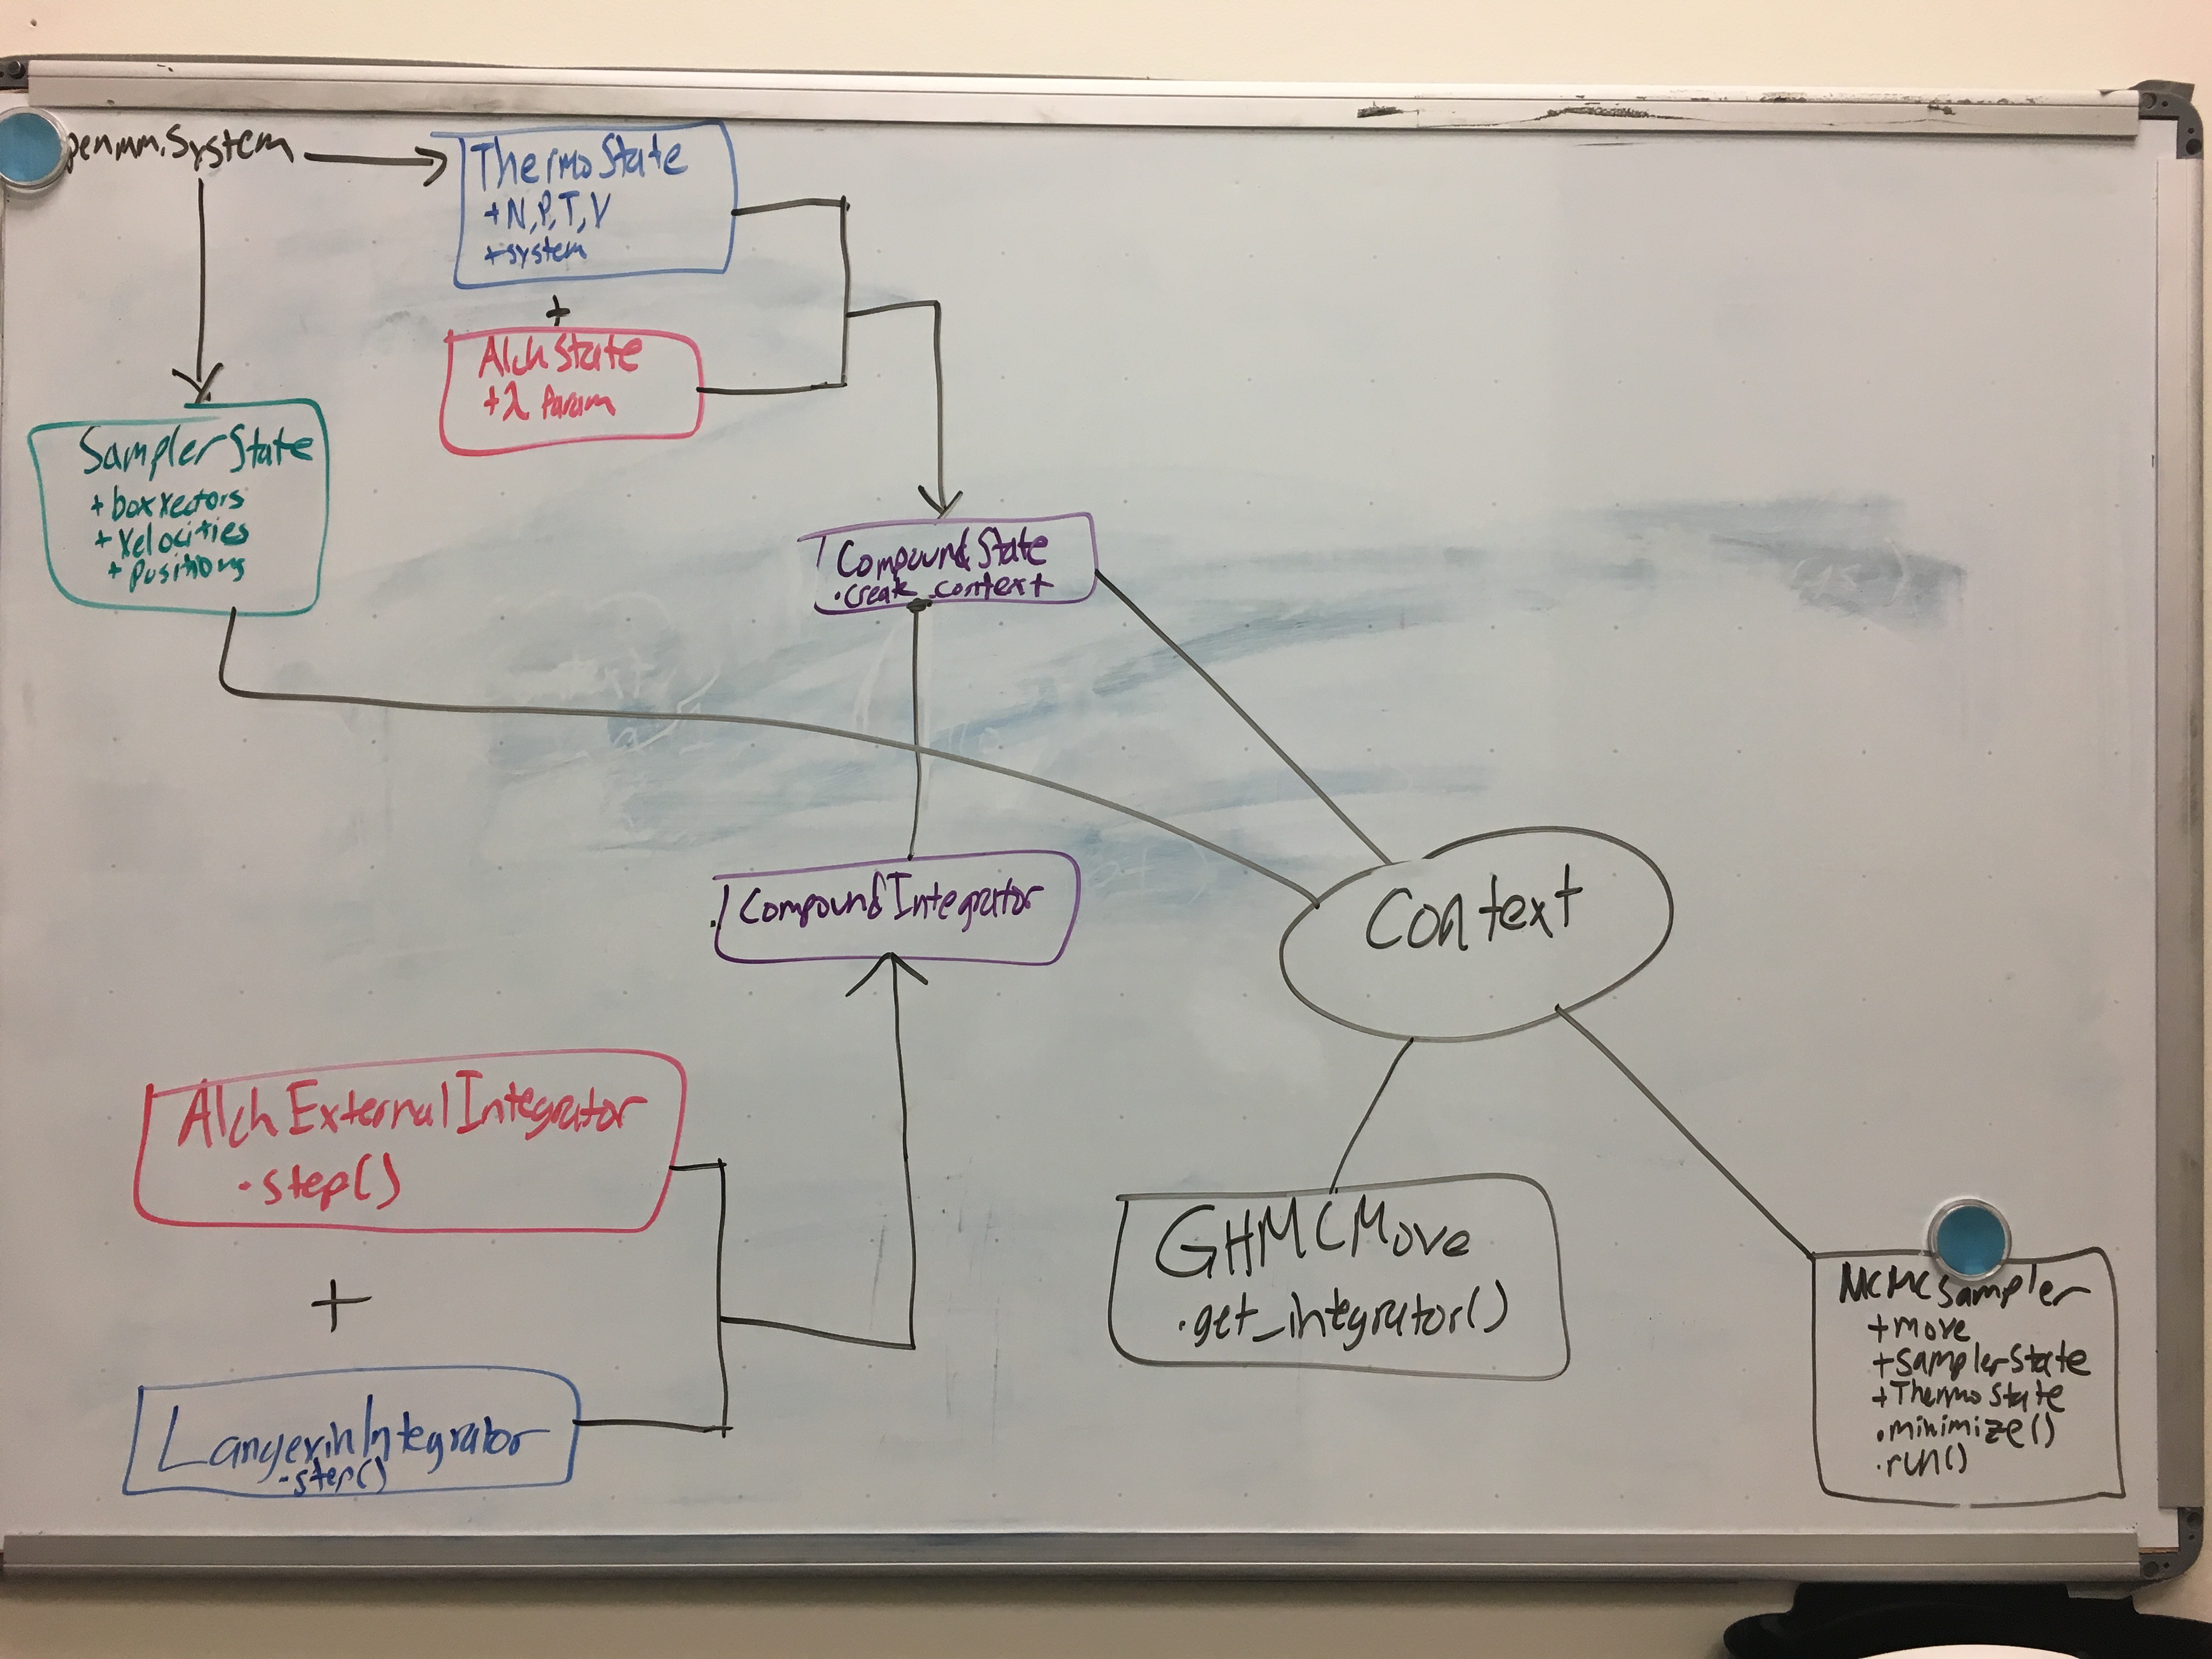 penmm.System
ThermoState
+N,P,T,V
+system
+
AlchState
+λ Param
SamplerState
+ boxvectors
+ velocities
+ positions
CompoundState
.create_context
CompoundIntegrator
Context
AlchExternalIntegrator
.step()
+
LangevinIntegrator
.step()
GHMCMove
.get_integrator()
MCMCSampler
+move
+SamplerState
+ThermoState
.minimize()
.run()